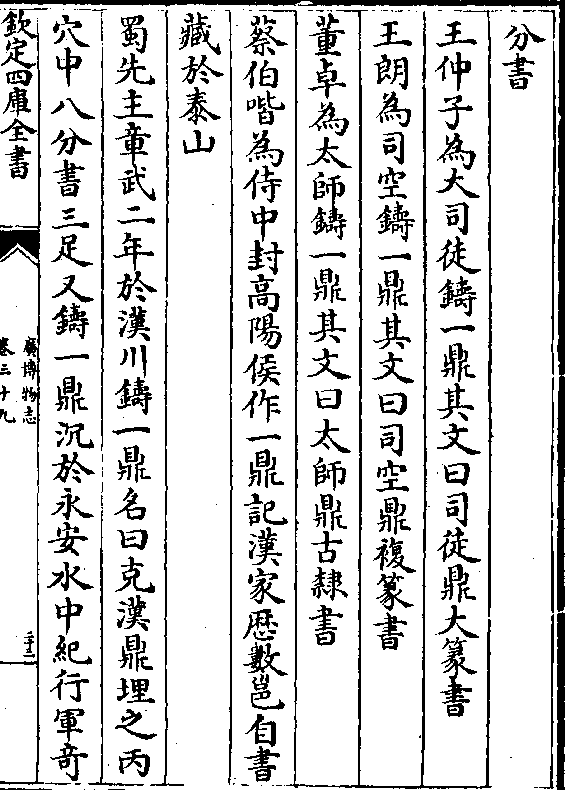 分書
王仲子為大司徒鑄一鼎其文曰司徒鼎大篆書
王朗為司空鑄一鼎其文曰司空鼎複篆書
董卓為太師鑄一鼎其文曰太師鼎古隸書
蔡伯喈為侍中封高陽侯作一鼎記漢家厯數邕自書
藏於泰山
蜀先主章武二年於漢川鑄一鼎名曰克漢鼎埋之丙
穴中八分書三足又鑄一鼎沉於永安水中紀行軍竒
欽定四庫全書
廣博物志
卷三十九